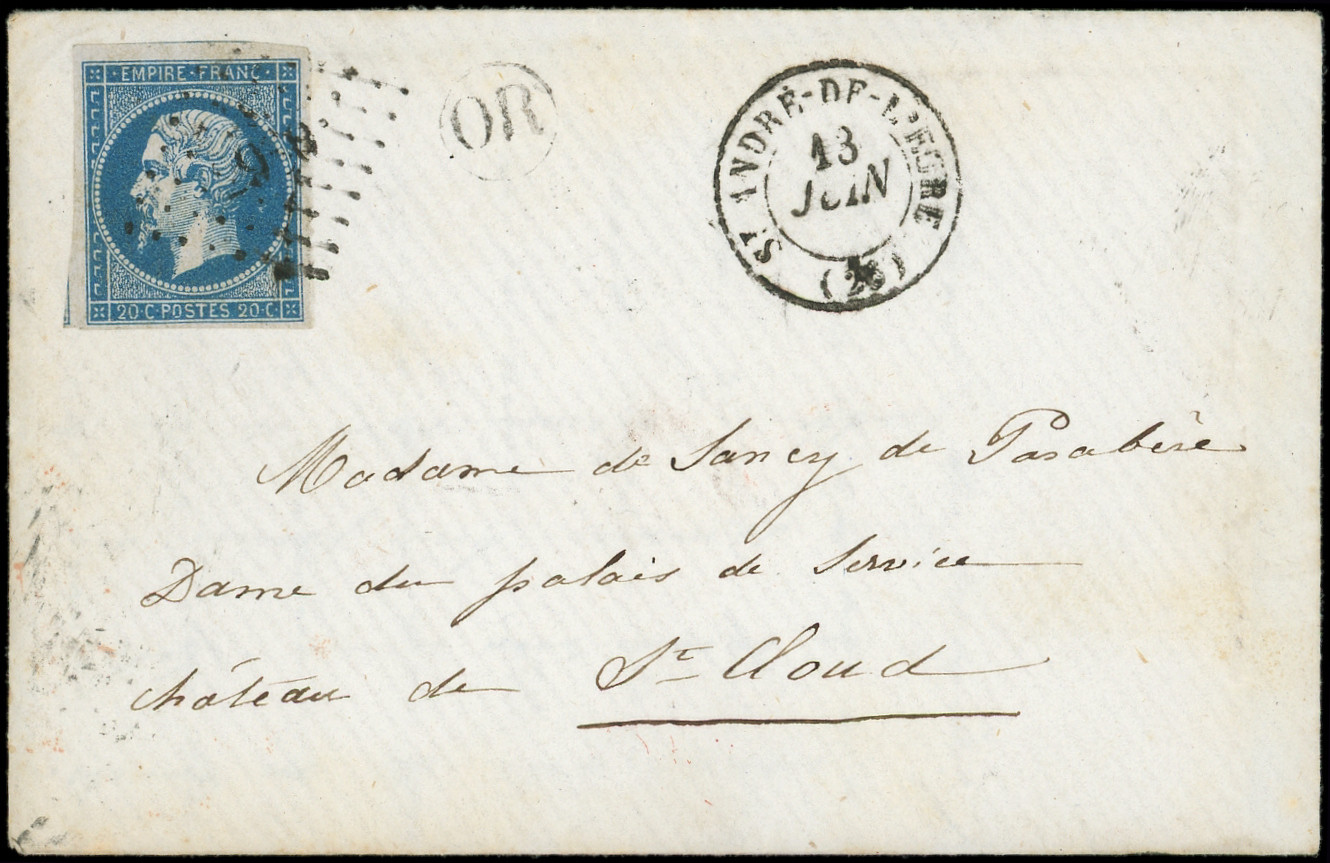 EMPIRE·FRANC·
20·C·POSTES 20·C·
OR
ST ANDRÉ-DE-L'EURE
13
JUIN
(26)
Madame de Sancy de Parabère
Dame du palais de Service
château de St Cloud